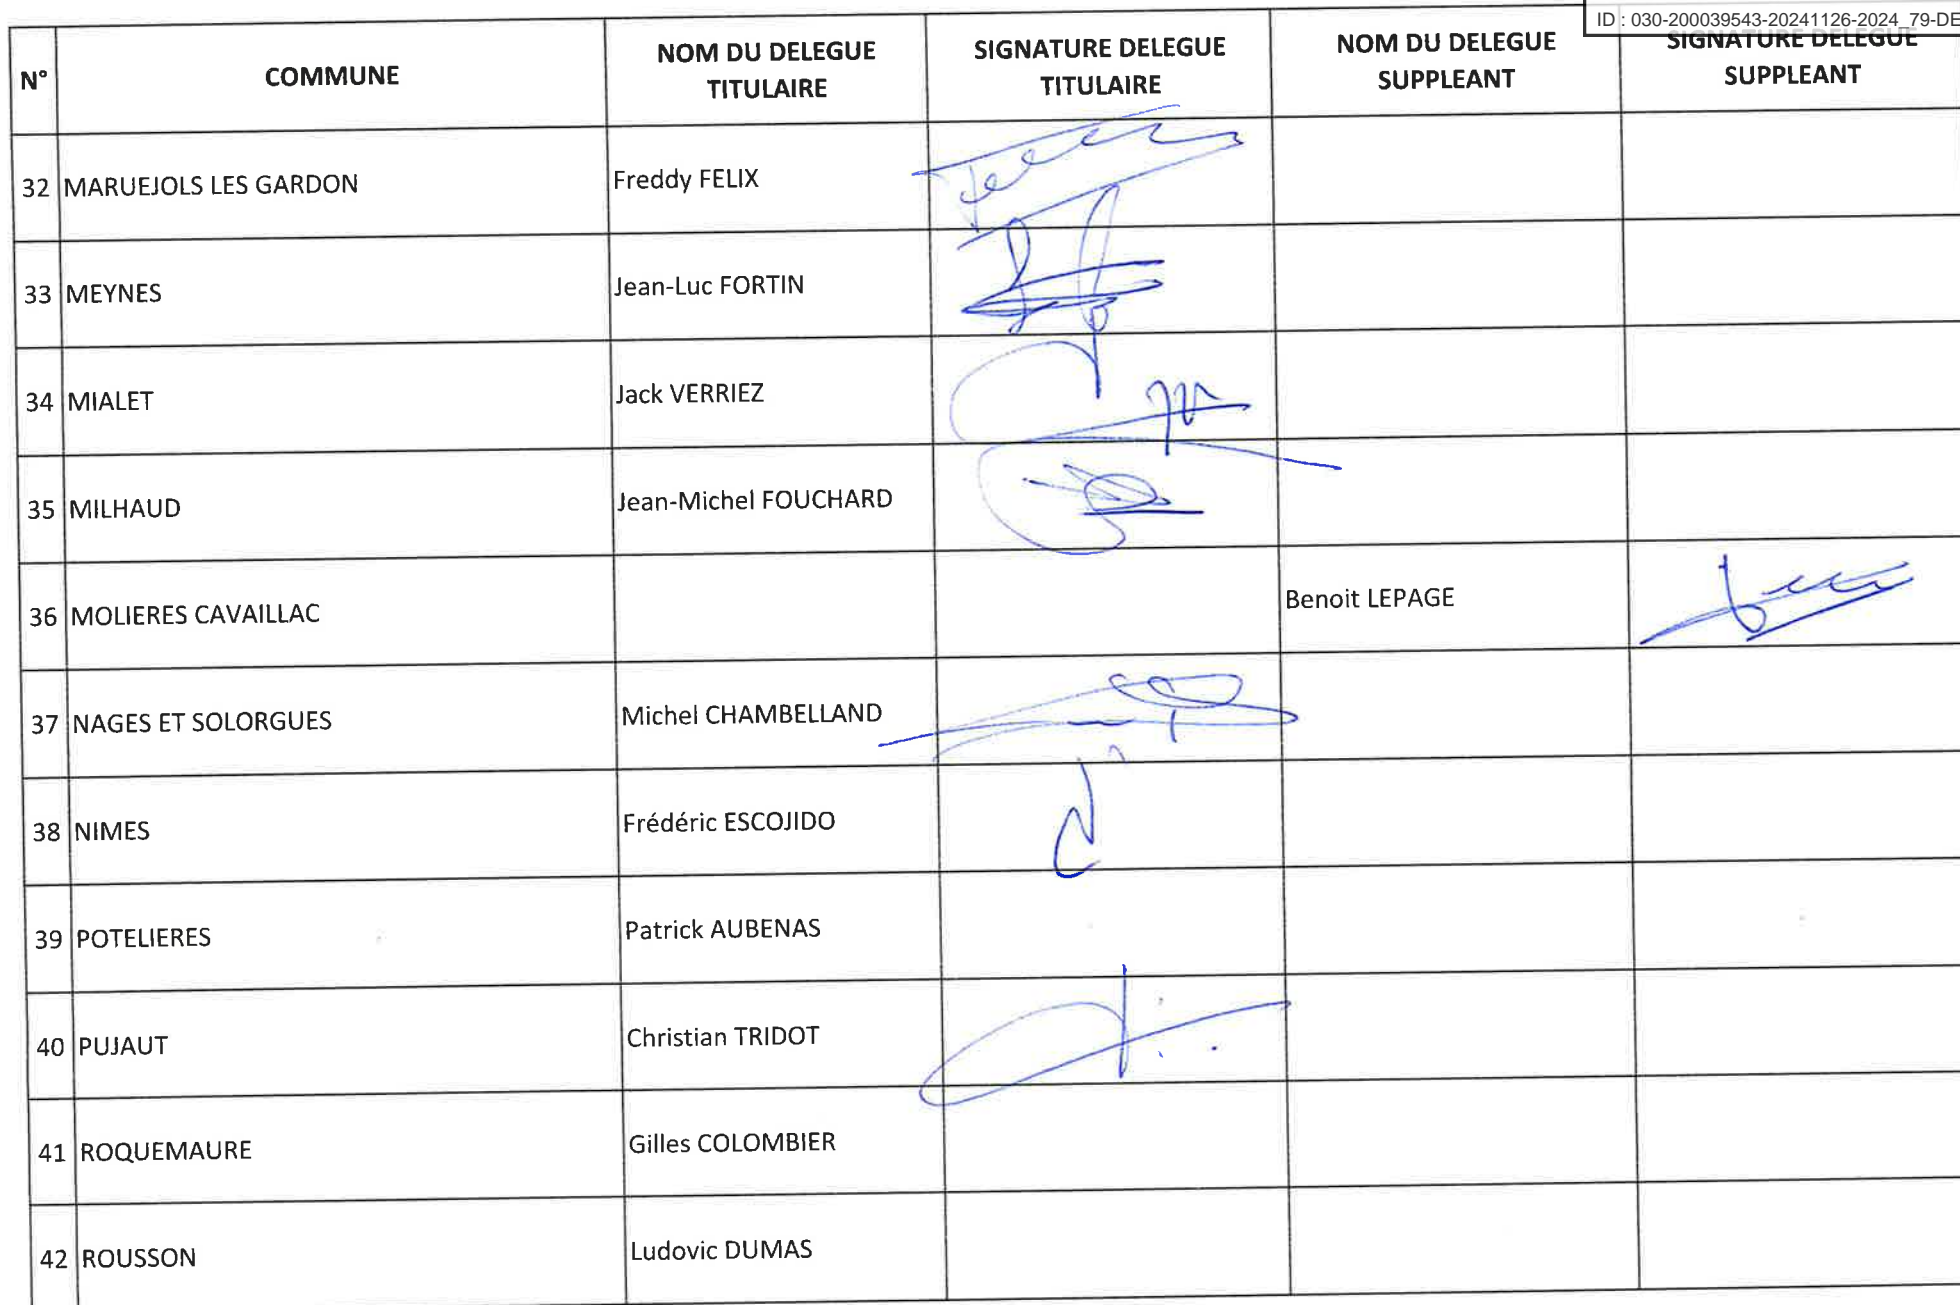 ID : 030-200039543-20241126-2024_79-DE
N°
COMMUNE
NOM DU DELEGUE
TITULAIRE
SIGNATURE DELEGUE
TITULAIRE
NOM DU DELEGUE
SUPPLEANT
SIGNATURE DELEGUE
SUPPLEANT
32 MARUEJOLS LES GARDON Freddy FELIX
33 MEYNES Jean-Luc FORTIN
34 MIALET Jack VERRIEZ
35 MILHAUD Jean-Michel FOUCHARD
36 MOLIERES CAVAILLAC Benoit LEPAGE
37 NAGES ET SOLORGUES Michel CHAMBELLAND
38 NIMES Frédéric ESCOJIDO
39 POTELIERES Patrick AUBENAS
40 PUJAUT Christian TRIDOT
41 ROQUEMAURE Gilles COLOMBIER
42 ROUSSON Ludovic DUMAS